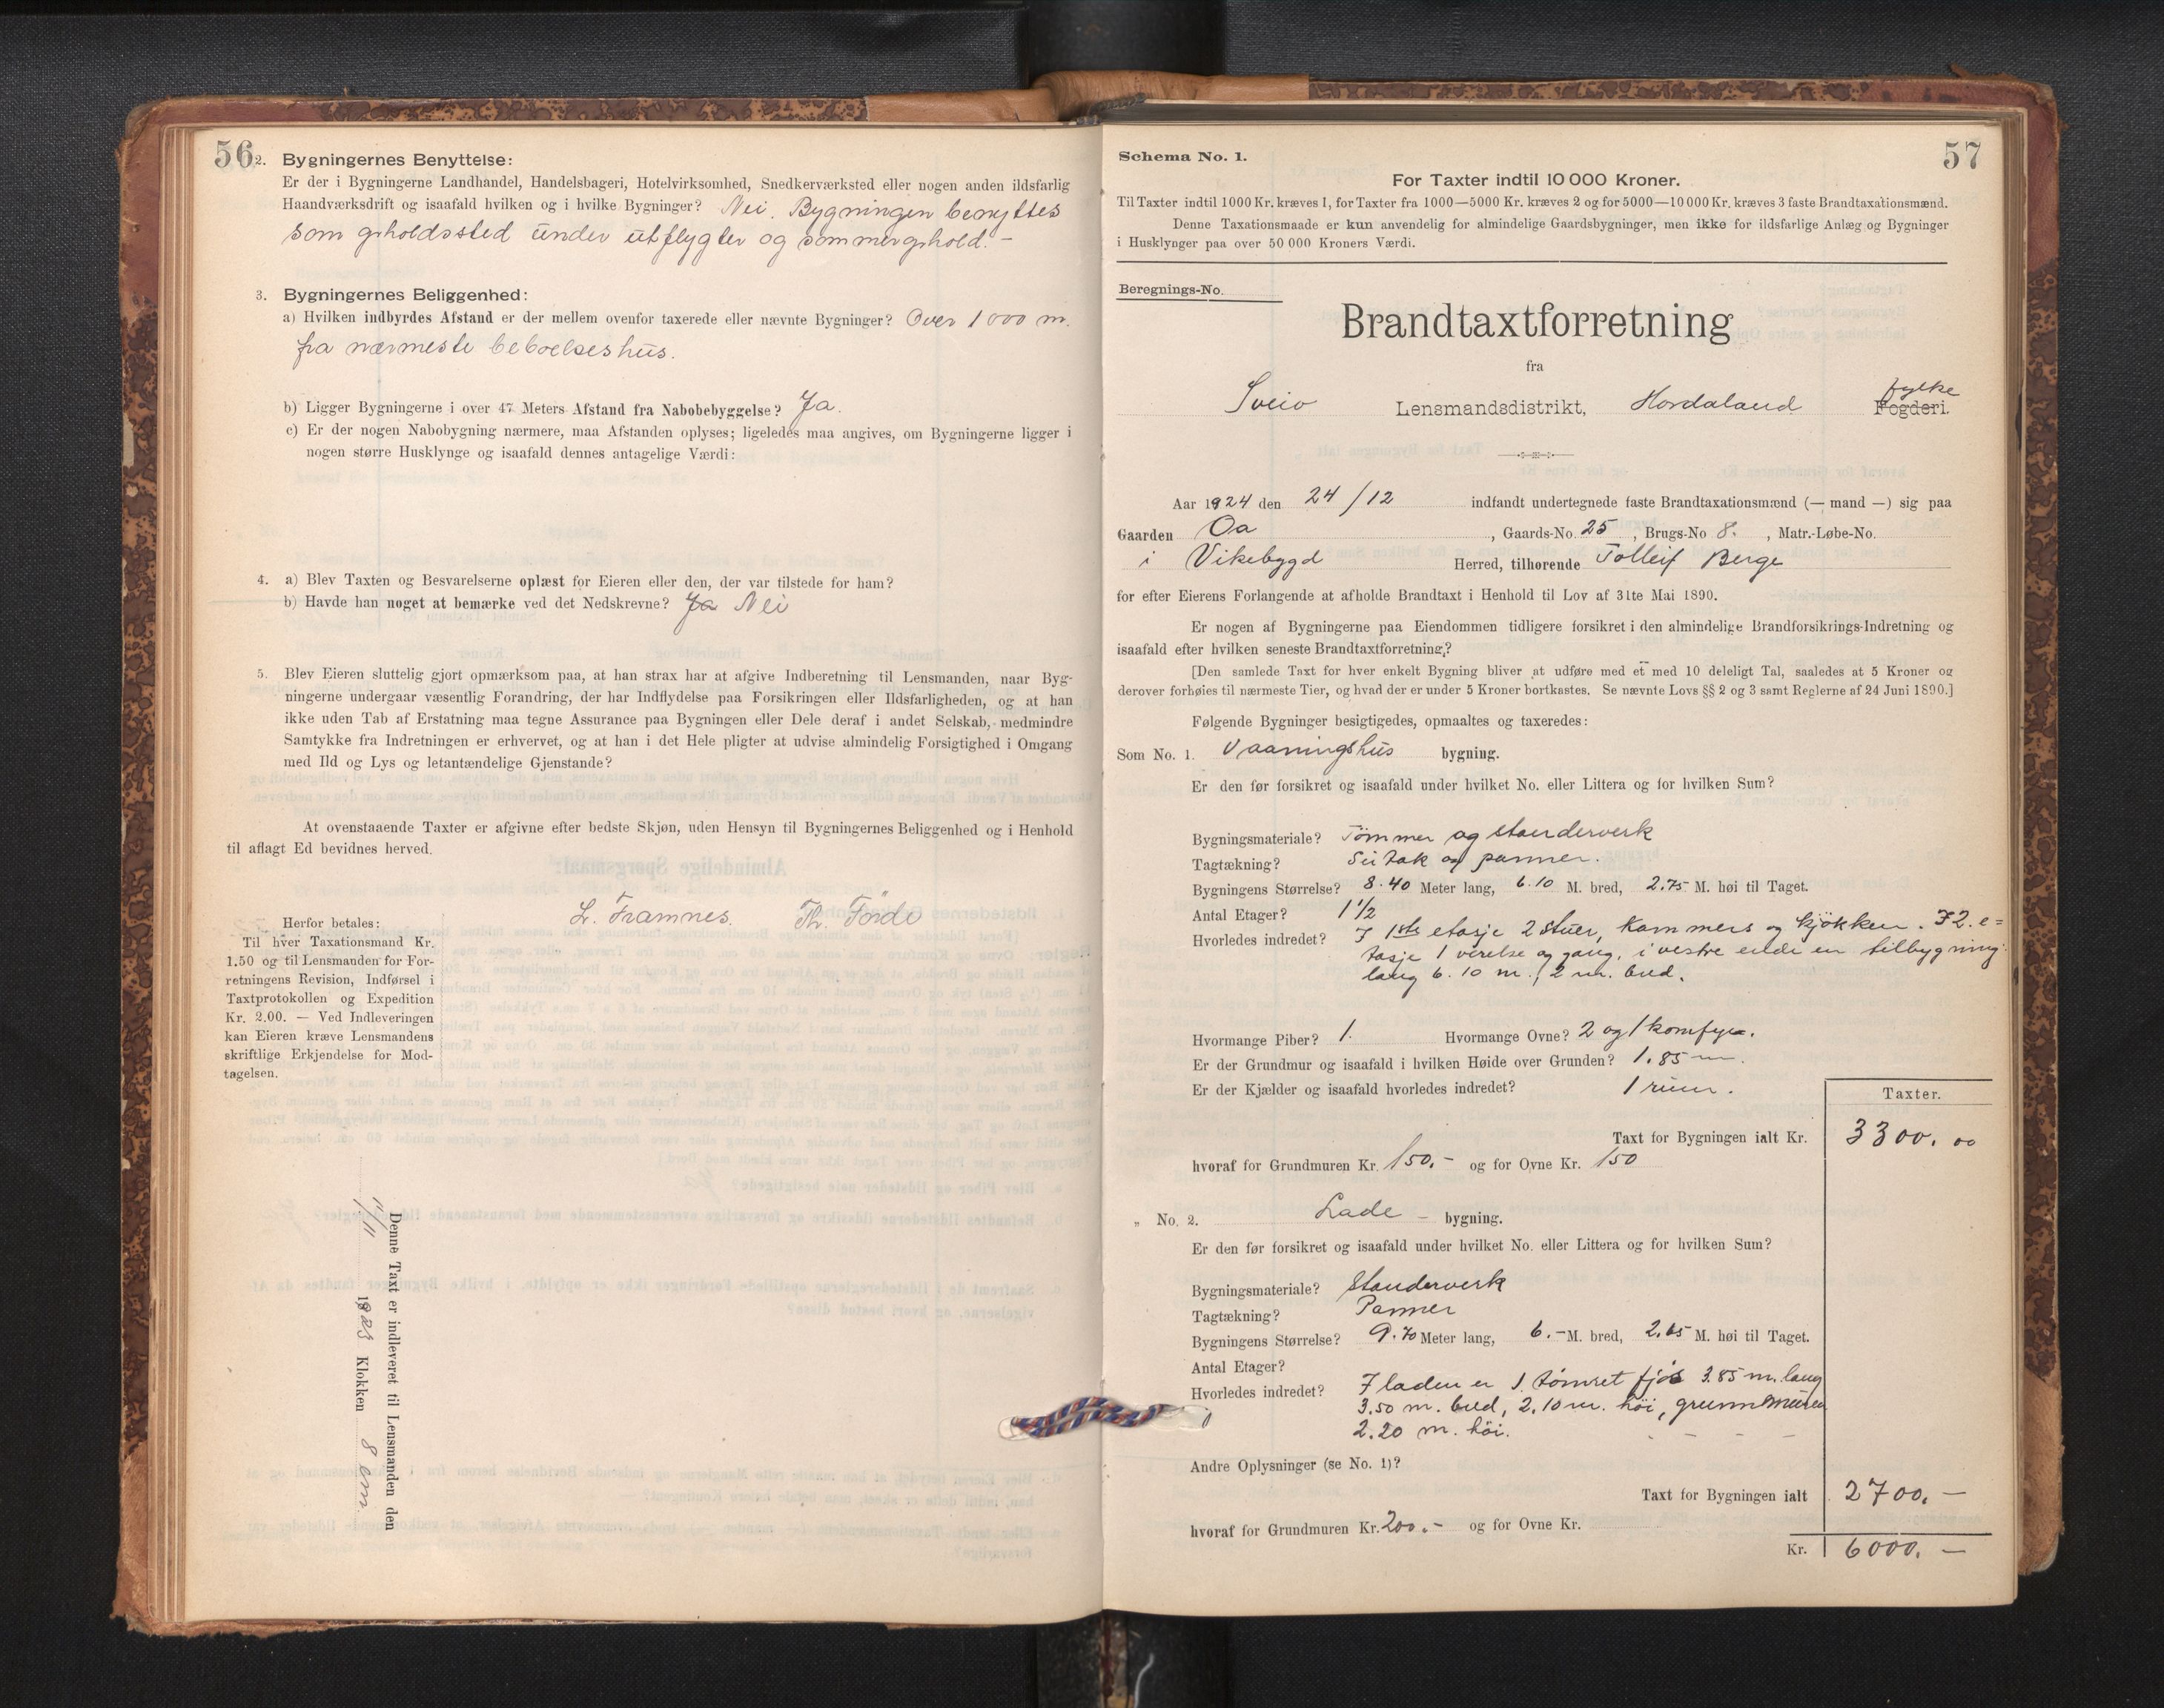 56
2. Bygningernes Benyttelse:
Er der i Bygningerne Landhandel, Handelsbageri, Hotelvirksomhed, Snedkerværksted eller nogen anden ildsfarlig
Haandværksdrift og isaafald hvilken og i hvilke Bygninger? Nei. Bygningen benyttes
som opholdssted under utflygter og sommerophold. —
3. Bygningernes Beliggenhed:
a) Hvilken indbyrdes Afstand er der mellem ovenfor taxerede eller nævnte Bygninger? Over 1000 m.
fra nærmeste beboelseshus.
b) Ligger Bygningerne i over 47 Meters Afstand fra Nabobebyggelse? Ja.
c) Er der nogen Nabobygning nærmere, maa Afstanden oplyses; ligeledes maa angives, om Bygningerne ligger i
nogen større Husklynge og isaafald dennes antagelige Værdi:
4. a) Blev Taxten og Besvarelserne oplæst for Eieren eller den, der var tilstede for ham?
b) Havde han noget at bemærke ved det Nedskrevne? Ja Nei
5. Blev Eieren sluttelig gjort opmærksom paa, at han strax har at afgive Indberetning til Lensmanden, naar Byg-
ningerne undergaar væsentlig Forandring, der har Indflydelse paa Forsikringen eller Ildsfarligheden, og at han
ikke uden Tab af Erstatning maa tegne Assurance paa Bygningen eller Dele deraf i andet Selskab, medmindre
Samtykke fra Indretningen er erhvervet, og at han i det Hele pligter at udvise almindelig Forsigtighed i Omgang
med Ild og Lys og letantændelige Gjenstande?
At ovenstaaende Taxter er afgivne efter bedste Skjøn, uden Hensyn til Bygningernes Beliggenhed og i Henhold
til aflagt Ed bevidnes herved.
L. Framnes. Th. Förde
Herfor betales:
Til hver Taxationsmand Kr.
1.50 og til Lensmanden for For-
retningens Revision, Indførsel i
Taxtprotokollen og Expedition
Kr. 2.00. — Ved Indleveringen
kan Eieren kræve Lensmandens
skriftlige Erkjendelse for Mod-
tagelsen.
Denne Taxt er indleveret til Lensmanden den
17/11 1923 Klokken 8 em.
57
Schema No. 1.
For Taxter indtil 10 000 Kroner.
Til Taxter indtil 1000 Kr. kræves 1, for Taxter fra 1000—5000 Kr. kræves 2 og for 5000—10 000 Kr. kræves 3 faste Brandtaxationsmænd.
Denne Taxationsmaade er kun anvendelig for almindelige Gaardsbygninger, men ikke for ildsfarlige Anlæg og Bygninger
i Husklynger paa over 50 000 Kroners Værdi.
Beregnings-No.
Brandtaxtforretning
fra
Sveio Lensmandsdistrikt, Hordaland Fogderi. fylke
Aar 1924 den 24/12 indfandt undertegnede faste Brandtaxationsmænd (— mand —) sig paa
Gaarden Oa , Gaards-No. 25 , Brugs-No 8. , Matr.-Løbe-No.
i Vikebygd Herred, tilhørende Tolleif Berge
for efter Eierens Forlangende at afholde Brandtaxt i Henhold til Lov af 31te Mai 1890.
Er nogen af Bygningerne paa Eiendommen tidligere forsikret i den almindelige Brandforsikrings-Indretning og
isaafald efter hvilken seneste Brandtaxtforretning?
[Den samlede Taxt for hver enkelt Bygning bliver at udføre med et med 10 deleligt Tal, saaledes at 5 Kroner og
derover forhøies til nærmeste Tier, og hvad der er under 5 Kroner bortkastes. Se nævnte Lovs §§ 2 og 3 samt Reglerne af 24 Juni 1890.]
Følgende Bygninger besigtigedes, opmaaltes og taxeredes:
Som No. 1. Vaaningshus bygning.
Er den før forsikret og isaafald under hvilket No. eller Littera og for hvilken Sum?
Bygningsmateriale? Tömmer og stenderverk
Tagtækning? Sutak og panner.
Bygningens Størrelse? 8.40 Meter lang, 6.10 M. bred, 2.75 M. høi til Taget.
Antal Etager? 1 1/2
Hvorledes indredet? I 1ste etasje 2 stuer, kammers og kjökken. I 2. e=
tasje 1 værelse og gang, i vestre ende en tilbygning
lang 6.10 m., 2 m. bred.
Hvormange Piber? 1. Hvormange Ovne? 2 og 1 komfyr.
Er der Grundmur og isaafald i hvilken Høide over Grunden? 1.85 m.
Er der Kjælder og isaafald hvorledes indredet? 1 rum.
Taxter.
Taxt for Bygningen ialt Kr. 3300. 00
hvoraf for Grundmuren Kr. 150.- og for Ovne Kr. 150
„ No. 2. Lade - bygning.
Er den før forsikret og isaafald under hvilket No. eller Littera og for hvilken Sum?
Bygningsmateriale? Stenderverk
Tagtækning? Panner
Bygningens Størrelse? 9.70 Meter lang, 6.- M. bred, 2.65 M. høi til Taget.
Antal Etager?
Hvorledes indredet? I laden er 1 tömret fjös 3.85 m. lang
3.50 m. bred, 2.10 m. höi, grunnmuren
2.20 m. höi.
Andre Oplysninger (se No. 1)?
Taxt for Bygningen ialt 2700.—
hvoraf for Grundmuren Kr. 200.- og for Ovne Kr.
Kr. 6000.—